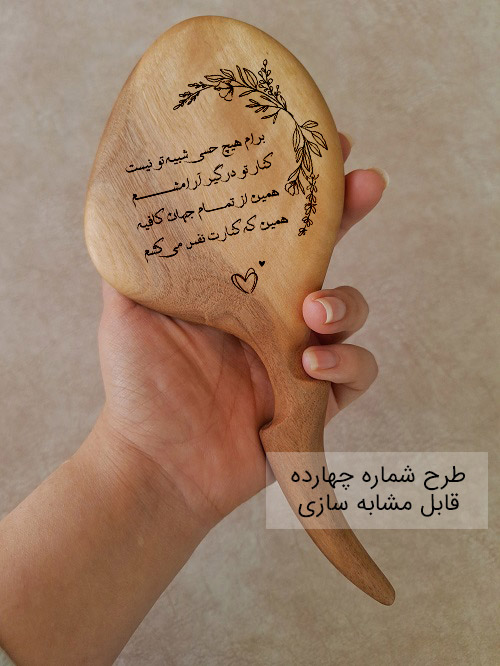 برام هیچ حسی شبیه تو نیست
کنار تو درگیر آرامشم
همین از تمام جهان کافیه
همین که کنارت نفس می کشم
طرح شماره چهارده
قابل مشابه سازی